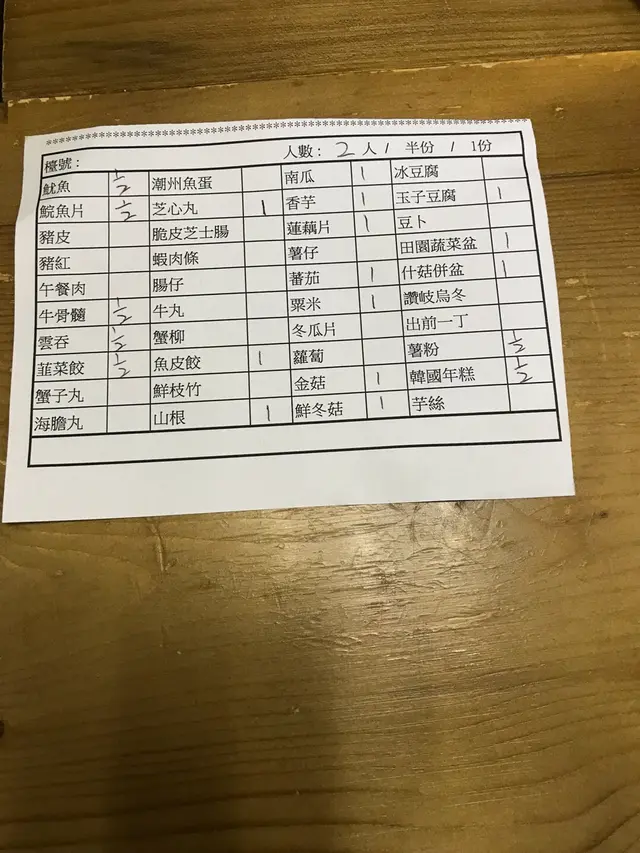 ************************************************************
檯號： 人數： 2 人 / 半份 / 1份
魷魚 1/2 潮州魚蛋 南瓜 1 冰豆腐
鯇魚片 1/2 芝心丸 1 香芋 1 玉子豆腐 1
豬皮 脆皮芝士腸 蓮藕片 1 豆卜
豬紅 蝦肉條 薯仔 田園蔬菜盆 1
午餐肉 腸仔 蕃茄 1 什菇併盆 1
牛骨髓 1/2 牛丸 粟米 1 讚岐烏冬
雲吞 1/2 蟹柳 冬瓜片 出前一丁
韮菜餃 1/2 魚皮餃 1 蘿蔔 薯粉 1/2
蟹子丸 鮮枝竹 金菇 1 韓國年糕 1/2
海膽丸 山根 1 鮮冬菇 1 芋絲